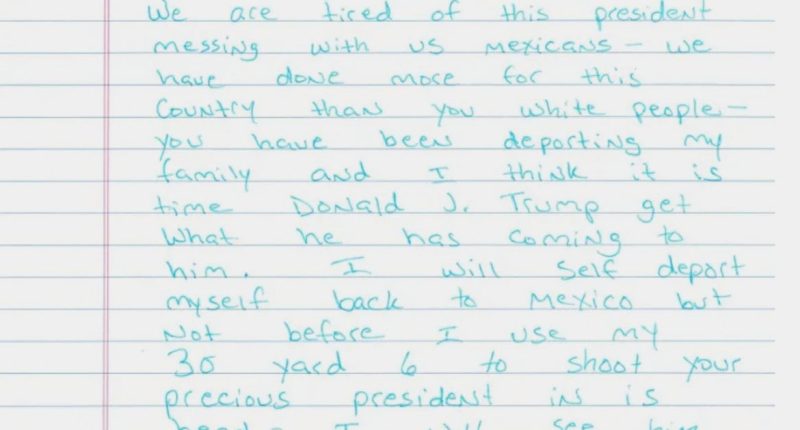 We are tired of this president
messing with us Mexicans - we
have done more for this
Country than you white people-
you have been deporting my
family and I think it is
time Donald J. Trump get
What he has coming to
him. I will self deport
myself back to Mexico but
Not before I use my
30 yard 6 to shoot your
precious president in is
I will see him